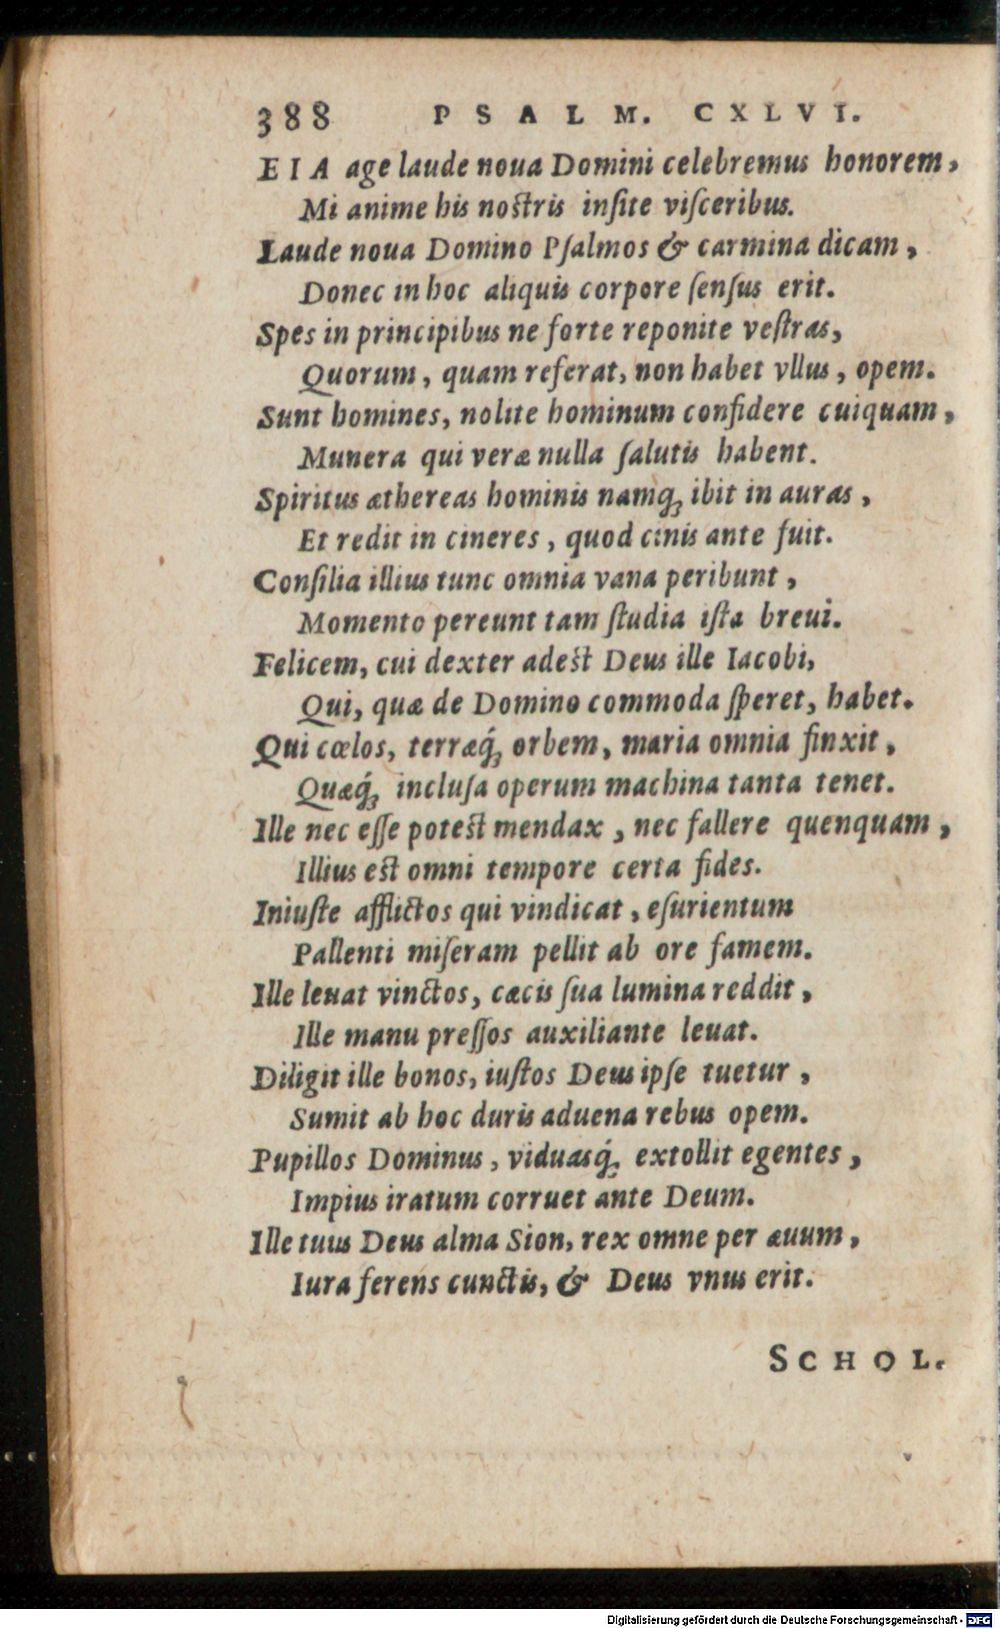 388 PSALM. CXLVI.
EIA age laude noua Domini celebremus honorem,
Mi anime his nostris insite visceribus.
Laude noua Domino Psalmos & carmina dicam,
Donec in hoc aliquis corpore sensus erit.
Spes in principibus ne forte reponite vestras,
Quorum, quam referat, non habet vllus, opem.
Sunt homines, nolite hominum confidere cuiquam,
Munera qui veræ nulla salutis habent.
Spiritus æthereas hominis namq; ibit in auras,
Et redit in cineres, quod cinis ante fuit.
Consilia illius tunc omnia vana peribunt,
Momento pereunt tam studia ista breui.
Felicem, cui dexter adest Deus ille Iacobi,
Qui, quæ de Domino commoda speret, habet.
Qui cœlos, terræq́; orbem, maria omnia finxit,
Quæq́; inclusa operum machina tanta tenet.
Ille nec esse potest mendax, nec fallere quenquam,
Illius est omni tempore certa fides.
Iniuste afflictos qui vindicat, esurientum
Pallenti miseram pellit ab ore famem.
Ille leuat vinctos, cæcis sua lumina reddit,
Ille manu pressos auxiliante leuat.
Diligit ille bonos, iustos Deus ipse tuetur,
Sumit ab hoc duris aduena rebus opem.
Pupillos Dominus, viduasq́; extollit egentes,
Impius iratum corruet ante Deum.
Ille tuus Deus alma Sion, rex omne per æuum,
Iura ferens cunctis, & Deus vnus erit.
SCHOL.
Digitalisierung gefördert durch die Deutsche Forschungsgemeinschaft - DFG